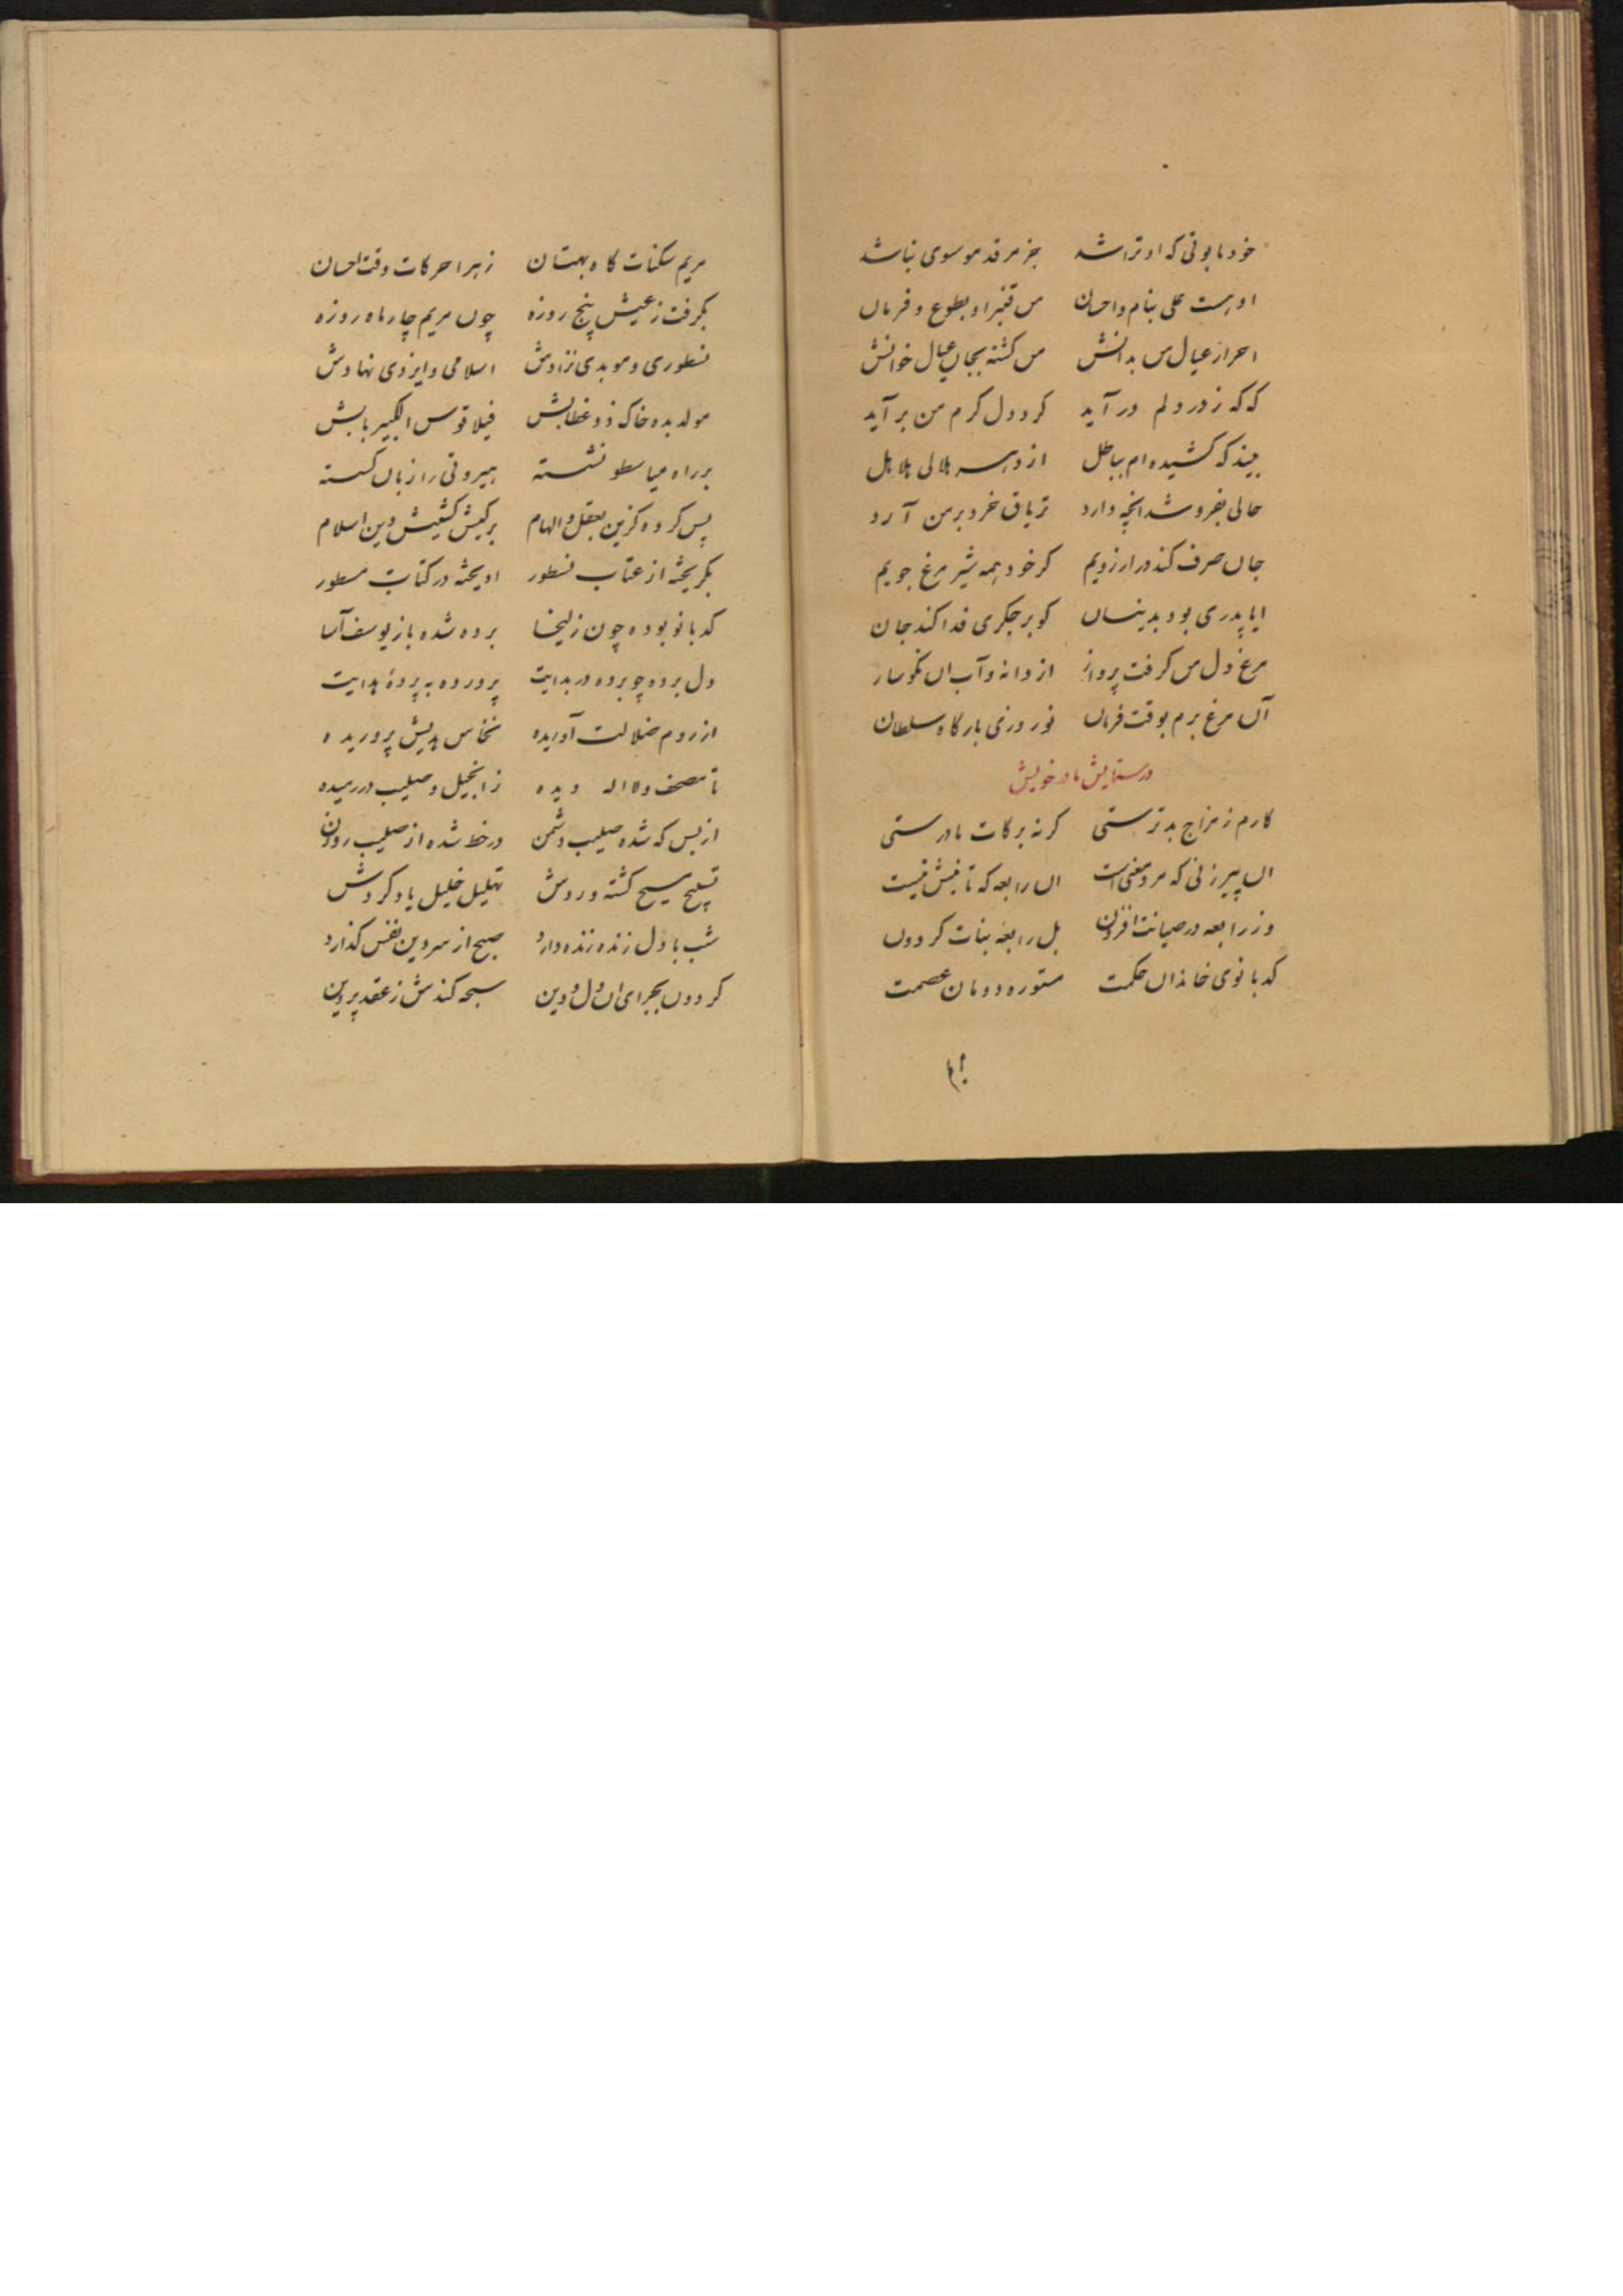 خود تابوتی که او تراشد جز مرقد موسوی نباشد
او هست علی بنام و احسان من قنبر او بطوع و فرمان
احرار عیال من بدانش من کشته بجان عیال خوانش
که که ز در دلم در آید کرد دل کرم من بر آید
بیند که کشیده ام بباطل از دهر هلالی هلاهل
حالی بفروشد انچه دارد تریاق خرد بر من آرد
جان صرف کند در ارزویم کر خود همه شیر مرغ جویم
ایا پدری بود بدینسان کو بر جکری فدا کند جان
مرغ دل من کرفت پرواز از دانه و آب ان نکوساز
آن مرغ برم بوقت فرمان نوروزی بارکاه سلطان
در ستایش مادر خویش
کارم ز مزاج بد ترستی کر نه برکات مادرستی
ان پیر زنی که مرد معنی است ان رابعه که ثانیش نیست
وز رابعه در صیانت افزون بل رابعه بنات کردون
کدبانوی خاندان حکمت مستوره دودمان عصمت
مریم سکنات کاه بهتان زهرا حرکات وقت احسان
بکرفت ز عیش پنج روزه چون مریم چار ماه روزه
نسطوری و موبدی نژادش اسلامی و ایزدی نهادش
مولد بده خاک ذو غطابش فیلاقوس الکبیر بابش
بر راه نشسته بیروتی را زبان کسسته
پس کرده کزین بعقل و الهام بر کیش کشیش دین اسلام
بکریخته از عتاب نسطور اویخته در کتاب مسطور
کدبانو بوده چون زلیخا برده شده باز یوسف آسا
دل برده چو برده در بدایت پرورده به پردهٔ هدایت
از روم ضلالت آوریده نخاس هدیش پروریده
تا مصحف و لا اله دیده ز انجیل و صلیب در رمیده
از بس که شده صلیب دشمن در خط شده از صلیب روزن
تسبیح مسیح کشته وردش تهلیل خلیل یاد کردش
شب با دل زنده زنده دارد صبح از سر دین نفس کذارد
کردون بجزای ان دل و دین سبحه کندش ز عقد پروین